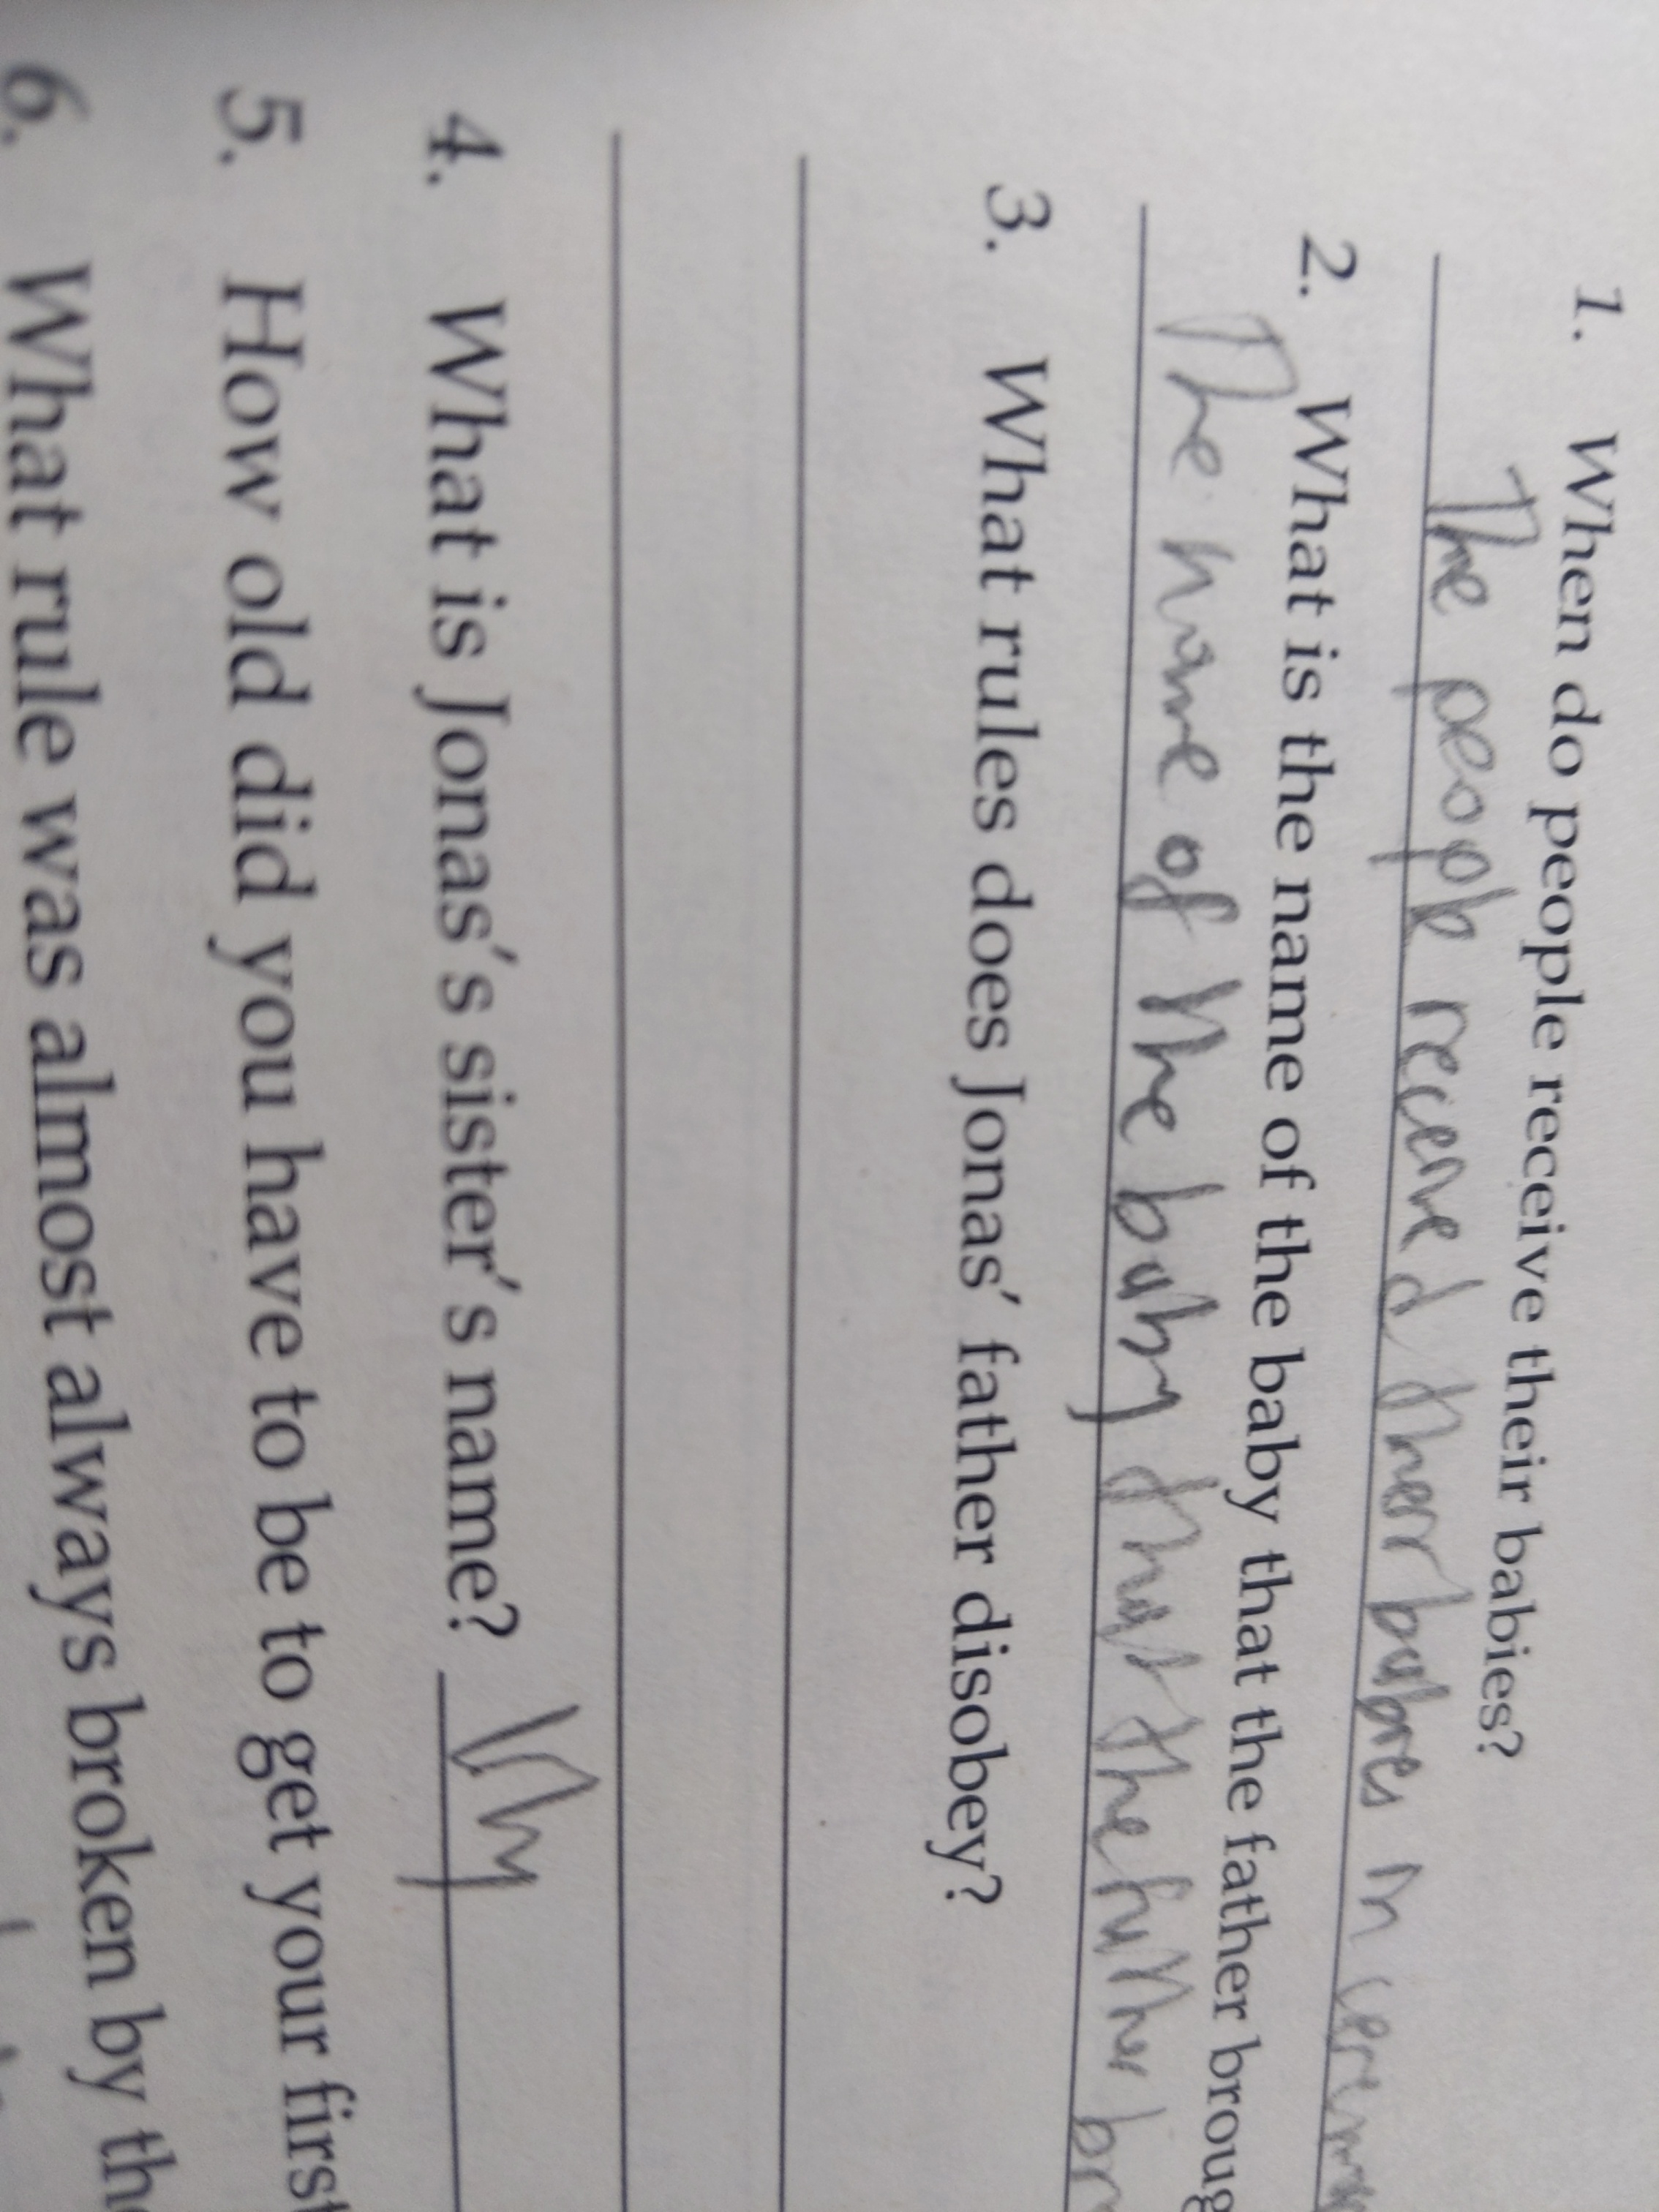 1. When do people receive their babies?
The people recieve d their babies in ceremo
2. What is the name of the baby that the father broug
The name of the baby that the father br
3. What rules does Jonas' father disobey?
4. What is Jonas's sister's name? Lily
5. How old did you have to be to get your first
6. What rule was almost always broken by the